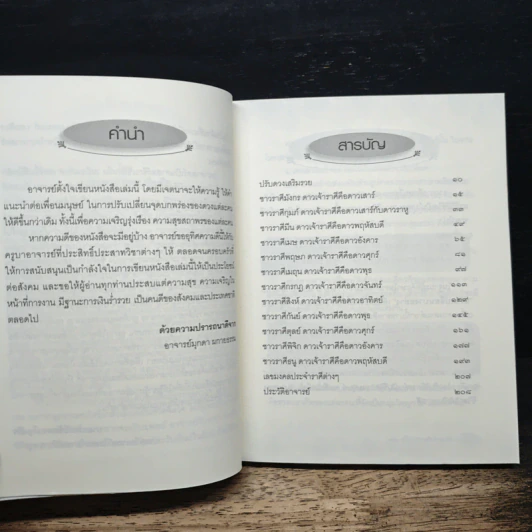 คำนำ
อาจารย์ตั้งใจเขียนหนังสือเล่มนี้ โดยมีเจตนาจะให้ความรู้ ให้คำ
แนะนำต่อเพื่อนมนุษย์ ในการปรับเปลี่ยนจุดบกพร่องของดวงแต่ละคน
ให้ดีขึ้นกว่าเดิม ทั้งนี้เพื่อความเจริญรุ่งเรือง ความสุขสภาพของแต่ละคน
หากความดีของหนังสือจะมีอยู่บ้าง อาจารย์ขออุทิศความดีนี้ให้กับ
ครูบาอาจารย์ที่ประสิทธิ์ประสาทวิชาต่างๆ ให้ ตลอดจนครอบครัวที่
ให้การสนับสนุนเป็นกำลังใจในการเขียนหนังสือเล่มนี้ให้เป็นประโยชน์
ต่อสังคม และขอให้ผู้อ่านทุกท่านประสบแต่ความสุข ความเจริญใน
หน้าที่การงาน มีฐานะการเงินร่ำรวย เป็นคนดีของสังคมและประเทศชาติ
ตลอดไป
ด้วยความปรารถนาดีจาก
อาจารย์มุกดา
สารบัญ
ปรับดวงเสริมรวย ๑๐
ชาวราศีมังกร ดาวเจ้าราศีคือดาวเสาร์ ๑๕
ชาวราศีกุมภ์ ดาวเจ้าราศีคือดาวเสาร์กับดาวราหู ๓๓
ชาวราศีมีน ดาวเจ้าราศีคือดาวพฤหัสบดี ๔๙
ชาวราศีเมษ ดาวเจ้าราศีคือดาวอังคาร ๖๕
ชาวราศีพฤษภ ดาวเจ้าราศีคือดาวศุกร์ ๘๑
ชาวราศีเมถุน ดาวเจ้าราศีคือดาวพุธ ๙๗
ชาวราศีกรกฎ ดาวเจ้าราศีคือดาวจันทร์ ๑๑๓
ชาวราศีสิงห์ ดาวเจ้าราศีคือดาวอาทิตย์ ๑๒๙
ชาวราศีกันย์ ดาวเจ้าราศีคือดาวพุธ ๑๔๕
ชาวราศีตุลย์ ดาวเจ้าราศีคือดาวศุกร์ ๑๖๑
ชาวราศีพิจิก ดาวเจ้าราศีคือดาวอังคาร ๑๗๗
ชาวราศีธนู ดาวเจ้าราศีคือดาวพฤหัสบดี ๑๙๓
เลขมงคลประจำราศีต่างๆ ๒๐๗
ประวัติอาจารย์ ๒๐๘